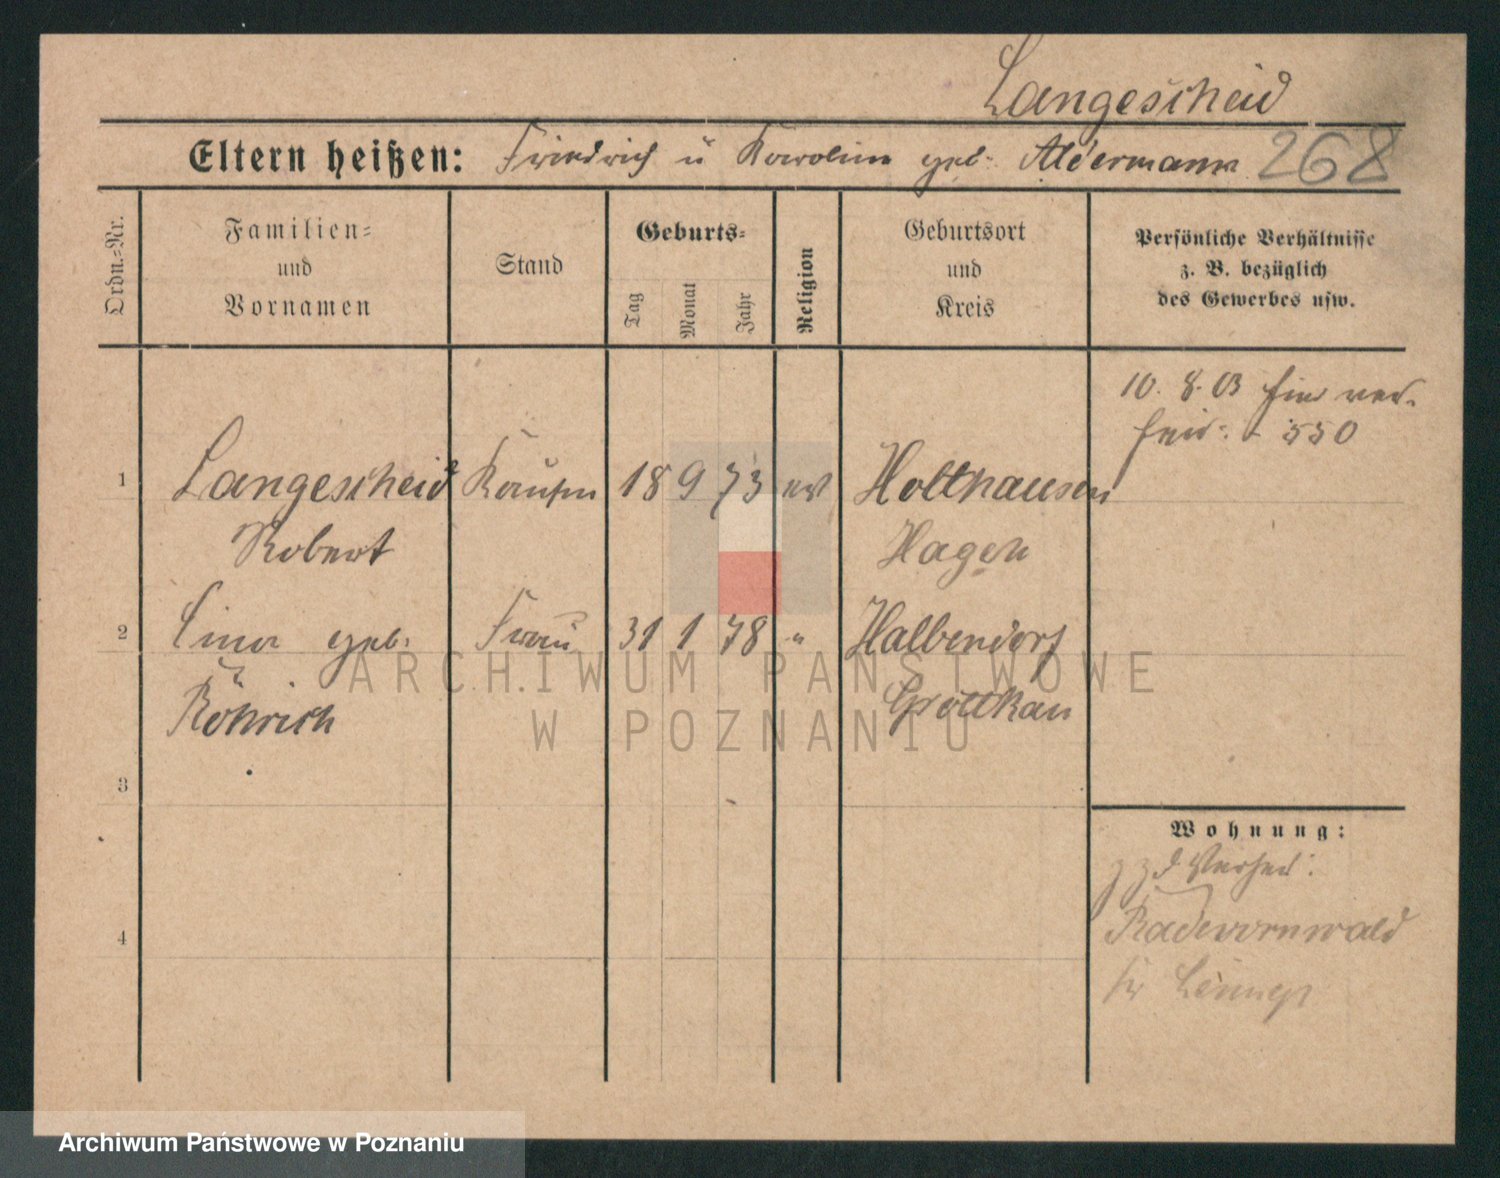 Langescheid
Eltern heißen: Friedrich u Karoline geb. Aldermann 268
Ordn.-Nr.
Familien-
und
Vornamen
Stand
Geburts-
Tag
Monat
Jahr
Religion
Geburtsort
und
Kreis
Persönliche Verhältnisse
z. B. bezüglich
des Gewerbes usw.
10. 8. 03 hier ver-
heir. 550
1 Langescheid Kaufm 18 9 73 ev Holthausen
Robert Hagen
2 Lina geb. Frau 31 1 78 " Halbendorf
Röhrich Grottkau
3
4
Wohnung:
z zd Verheir.
Radevormwald
Kr Lennep
ARCHIWUM PAŃSTWOWE
W POZNANIU
Archiwum Państwowe w Poznaniu